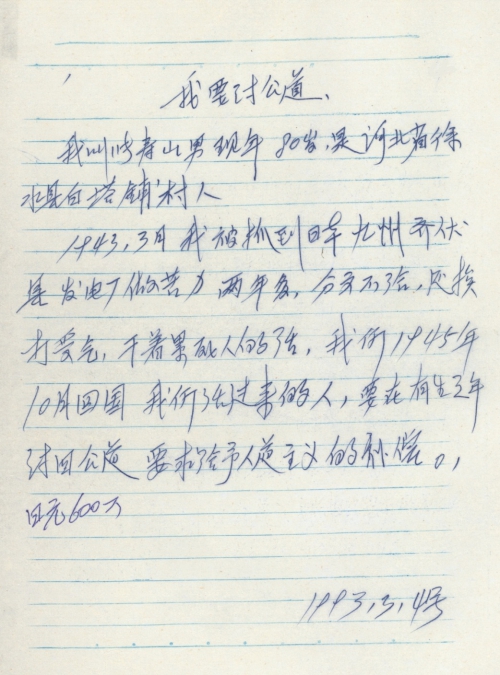 我要讨公道、
我叫时寿山男现年80岁,是河北省徐
水县白塔铺村人
1943.3月我被抓到日本九州
县发电厂做苦力两年多,分文不给,还挨
打受气,干着累死人的活,我们1945年
10月回国 我们活过来的人,要在有生之年
讨回公道 要求给予人道主义的补偿。,
日元600万
1993,3,4号